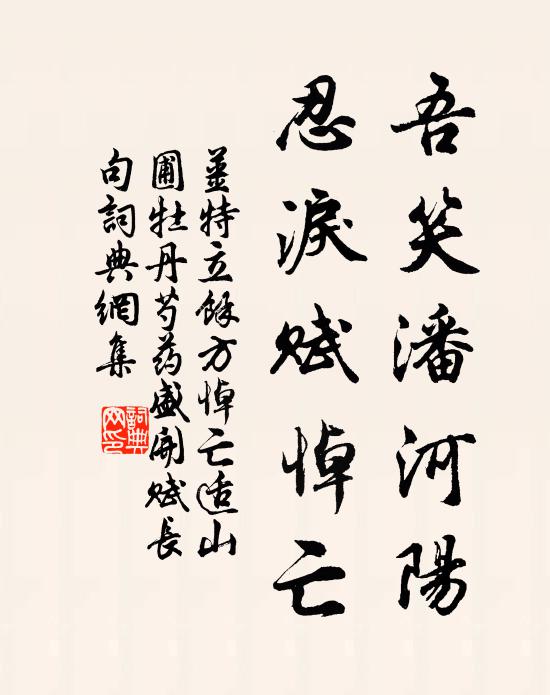 吾笑潘河陽
忍淚賦悼亡
薑特立餘方悼亡适山
圃牡丹芍葯盛開賦長
句詞典網集
詞典
网印